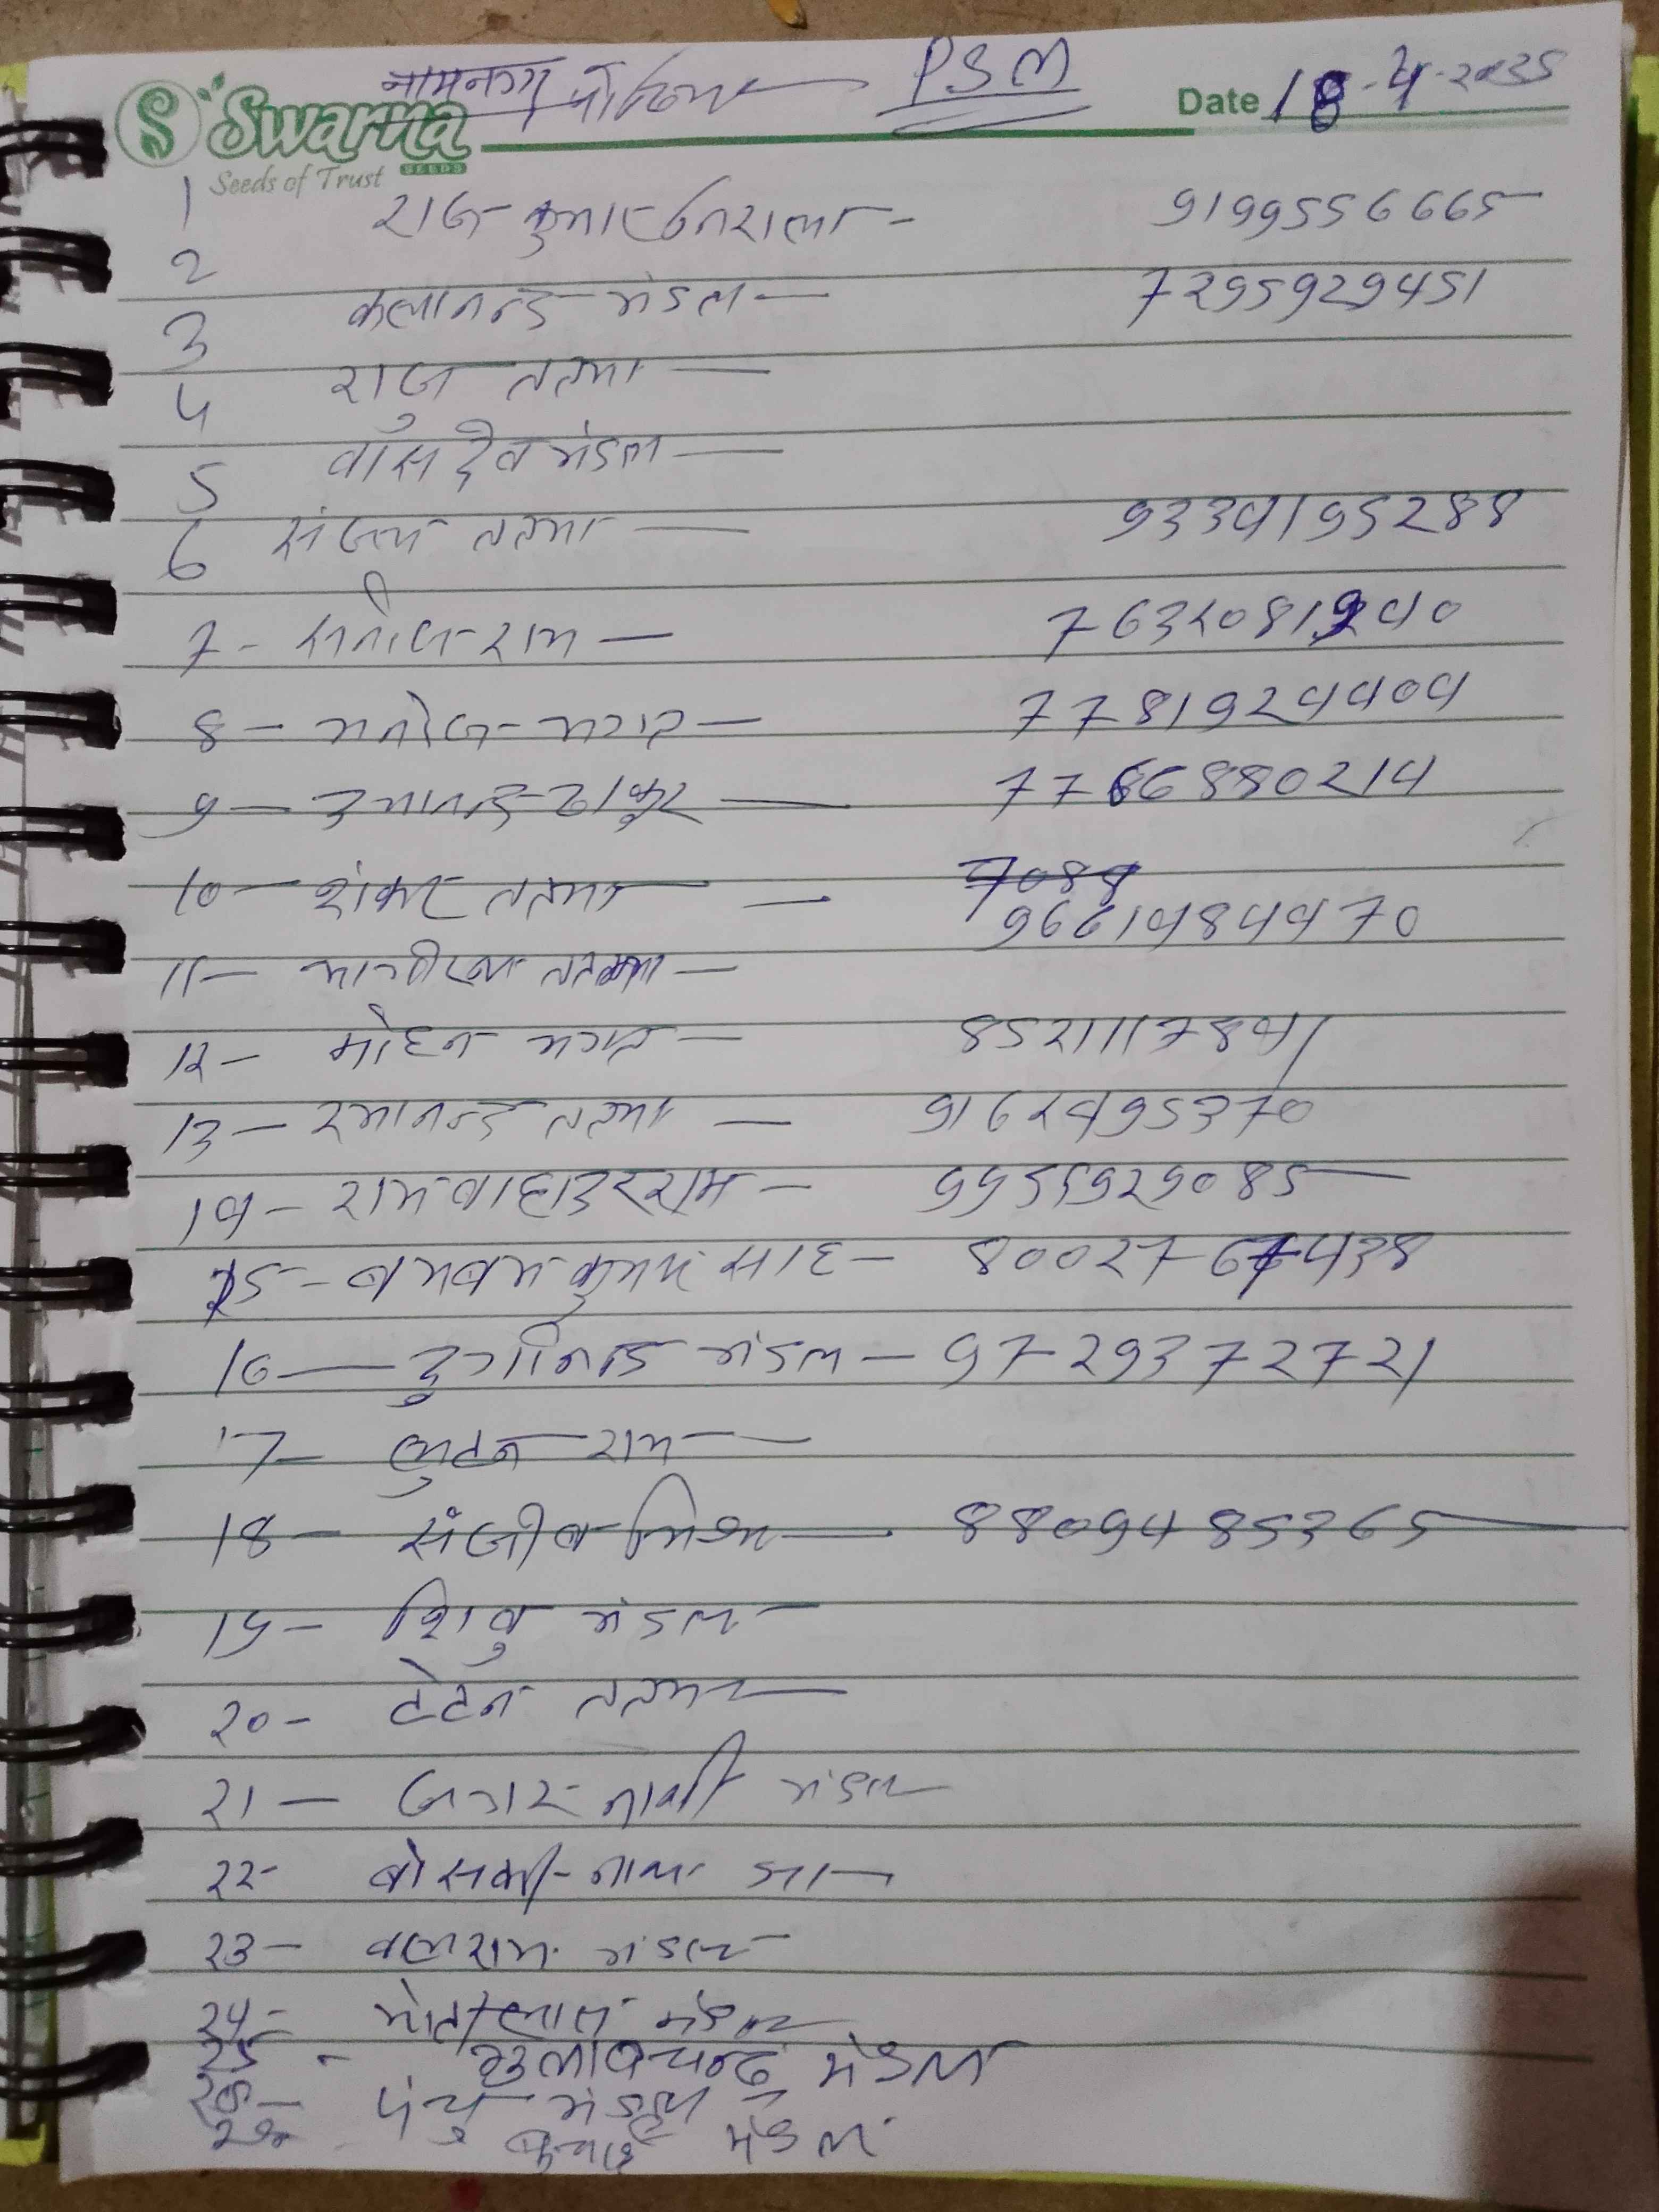 PSM
Swarna
SEEDS
Seeds of Trust
Date 18-4-2025
1 राज कुमार 9199556665
2 कलानन्द मंडल 7295929451
3 राजु ततमा
4 वासदेव मंडल
5
6 संजय ततमा 9334195288
7 - राम
8 - मनोज भगत 7781924404
9 - उमानन्द ठाकुर
10 - शंकर ततमा 7088
9661484470
11 - ततमा
12 - मोहन भगत 8521117841
13 - रमानन्द ततमा 9162495370
14 - रामबाहादुर राम - 9955929085
15 - बमबम कुमार साह -
16 - दुर्गानन्द मंडल - 9729372721
17 - लुटन राम
18 - संजीव मिश्रा 8809485365
19 - शिबु मंडल
20 - टेटन ततमा
21 - मंडल
22 - झा
23 - बलराम मंडल
24 - मोतीलाल मंडल
25 - गुलाबचन्द मंडल
26 - पंचु मंडल
27 मंडल